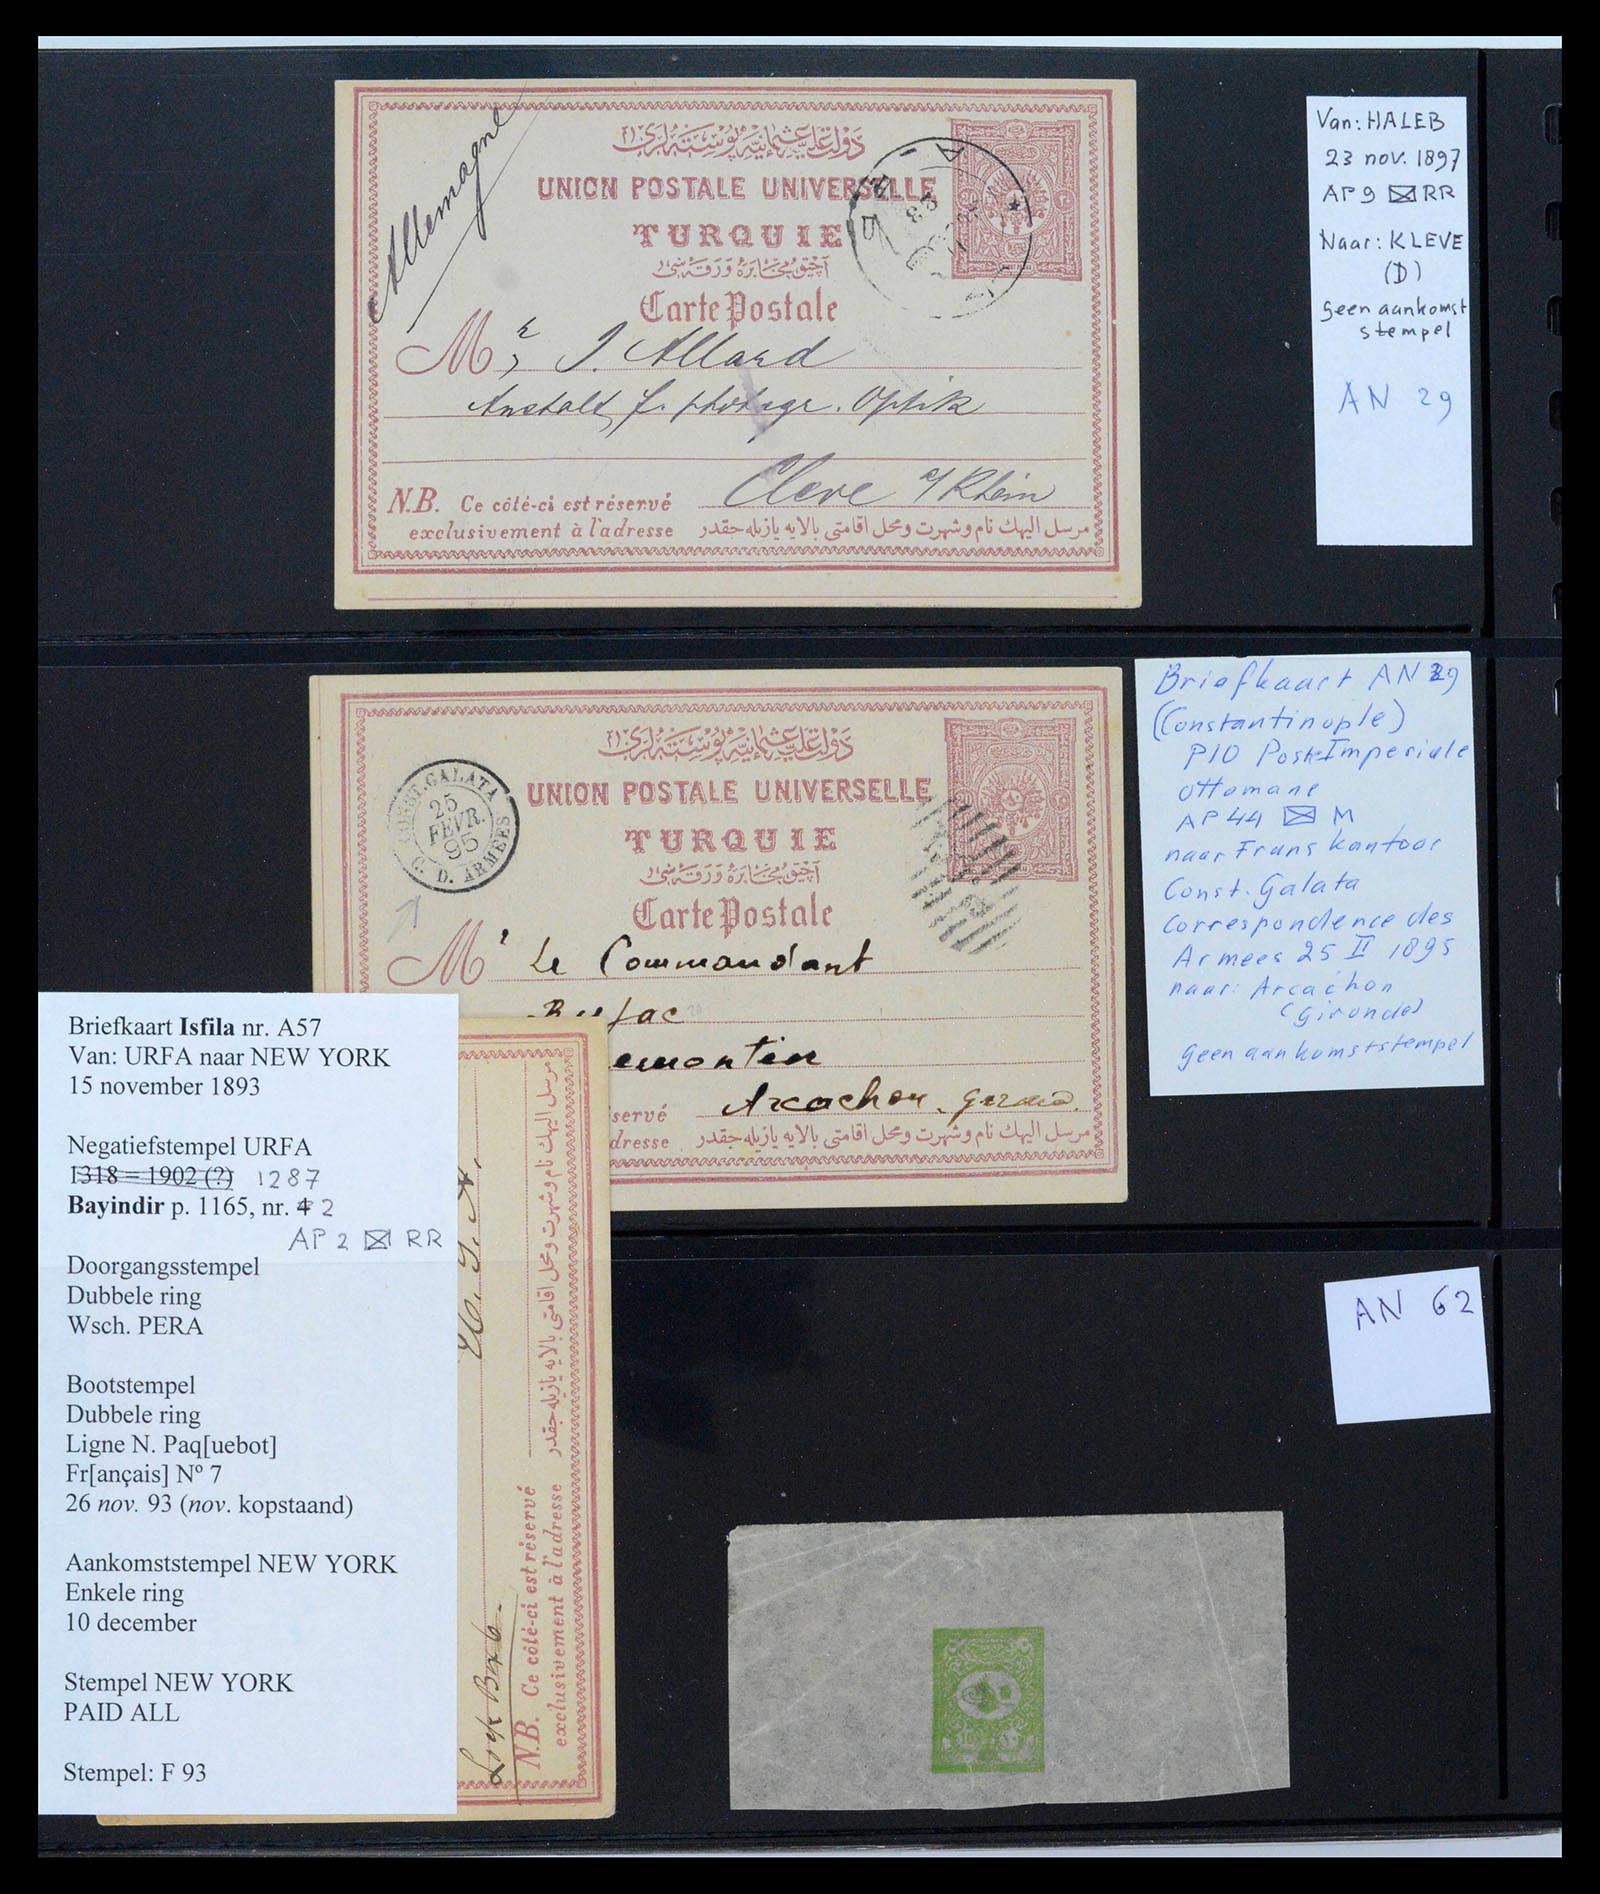 Allemagne
دولت علیه عثمانیه پوسته لری
UNION POSTALE UNIVERSELLE
TURQUIE
آچیق مخابره ورقه سی
Carte Postale
Mr, J. Allard
Anstalt f. photogr. Optik
Cleve a/Rhein
N.B. Ce côté-ci est réservé
exclusivement à l'adresse
مرسل الیهك نام وشهرت ومحل اقامتی بالایه یازیله جقدر
Van: HALEB
23 nov. 1897
AP 9 RR
Naar: KLEVE
(D)
geen aankomst
stempel
AN 29
دولت علیه عثمانیه پوسته لری
UNION POSTALE UNIVERSELLE
TURQUIE
آچیق مخابره ورقه سی
Carte Postale
CONST. GALATA
25
FEVR.
95
C. D. ARMEES
Mr Le Commandant
Arcachon.
servé
dresse
مرسل الیهك نام وشهرت ومحل اقامتی بالایه یازیله جقدر
Briefkaart AN 29
(Constantinople)
P10 Post Imperiale
ottomane
AP 44 M
naar Frans kantoor
Const. Galata
Correspondence des
Armees 25 II 1895
naar: Arcachon
(Gironde)
geen aankomststempel
Briefkaart Isfila nr. A57
Van: URFA naar NEW YORK
15 november 1893
Negatiefstempel URFA
1318 = 1902 (?) 1287
Bayindir p. 1165, nr. 4 2
AP 2 RR
Doorgangsstempel
Dubbele ring
Wsch. PERA
Bootstempel
Dubbele ring
Ligne N. Paq[uebot]
Fr[ançais] Nº 7
26 nov. 93 (nov. kopstaand)
Aankomststempel NEW YORK
Enkele ring
10 december
Stempel NEW YORK
PAID ALL
Stempel: F 93
مرسل الیهك نام وشهرت ومحل اقامتی بالایه یازیله جقدر
N.B. Ce côté-ci est réservé
exclusivement à l'adresse
AN 62